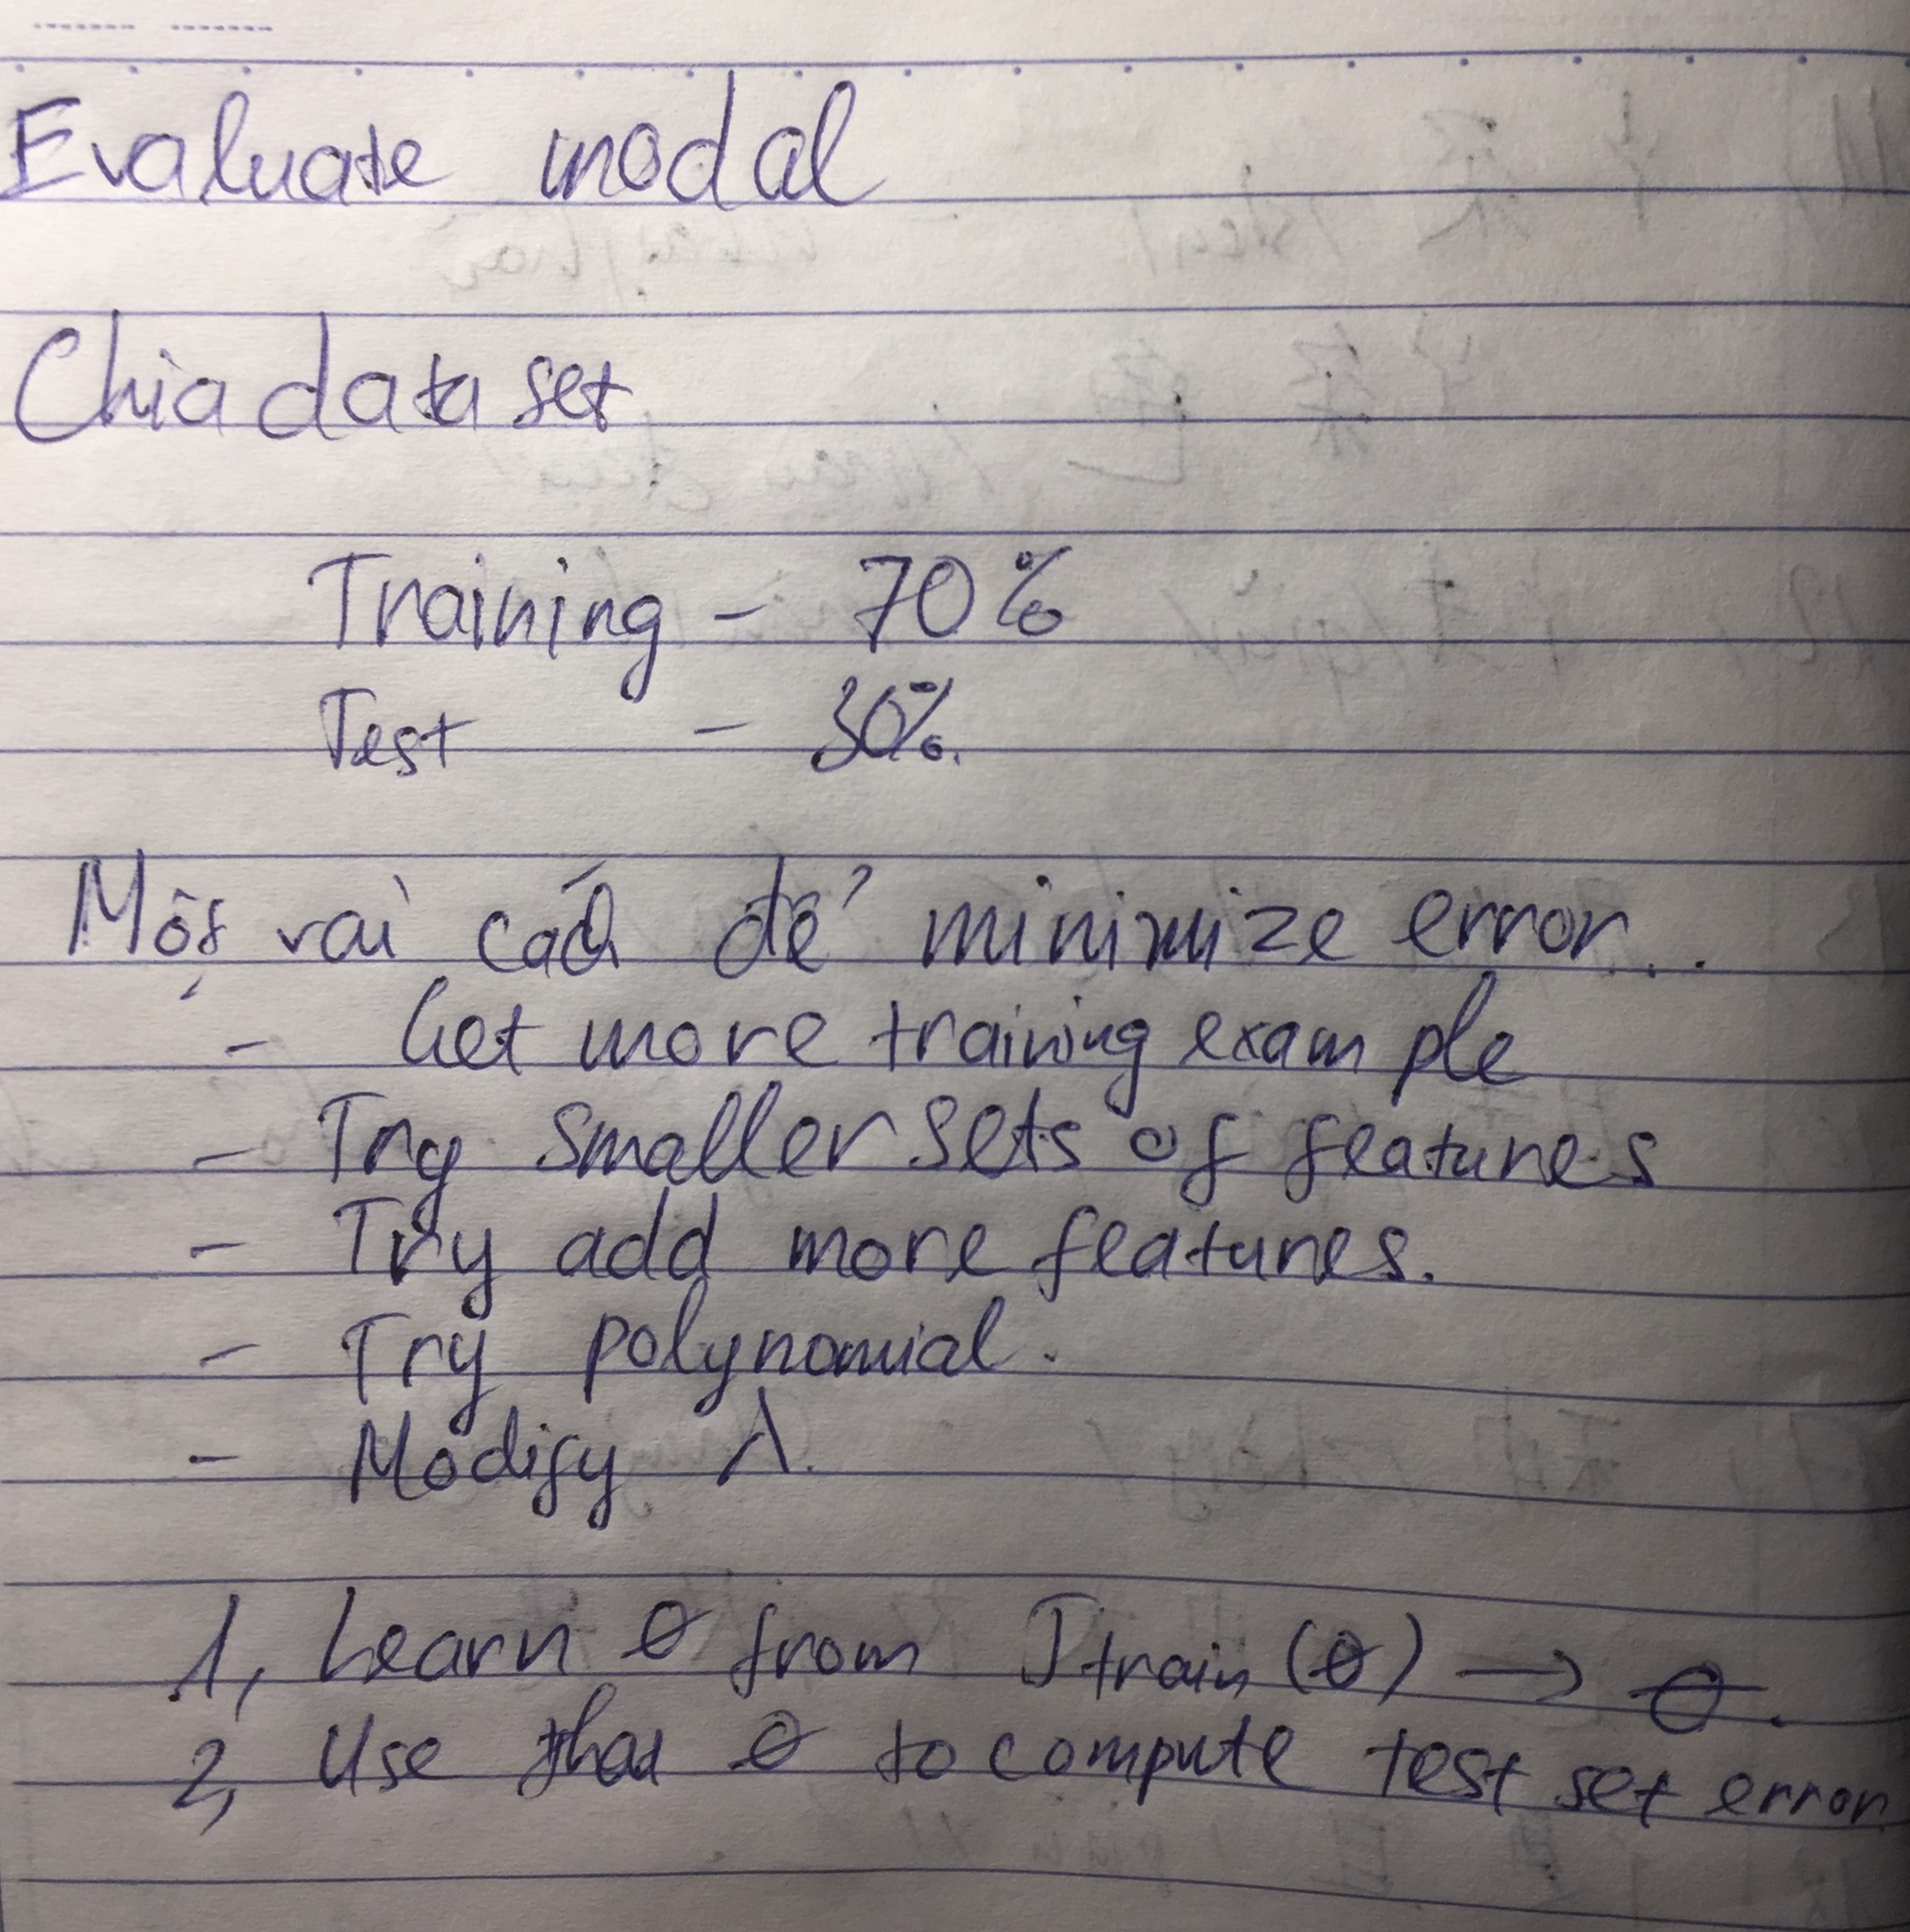 Evaluate modal
Chia data set
Training - 70%
Test - 30%.
Một vài cách để minimize error...
- Get more training example
- Try smaller sets of features
- Try add more features.
- Try polynomial.
- Modify λ.
1, Learn θ from Jtrain(θ) → θ.
2, Use that θ to compute test set error